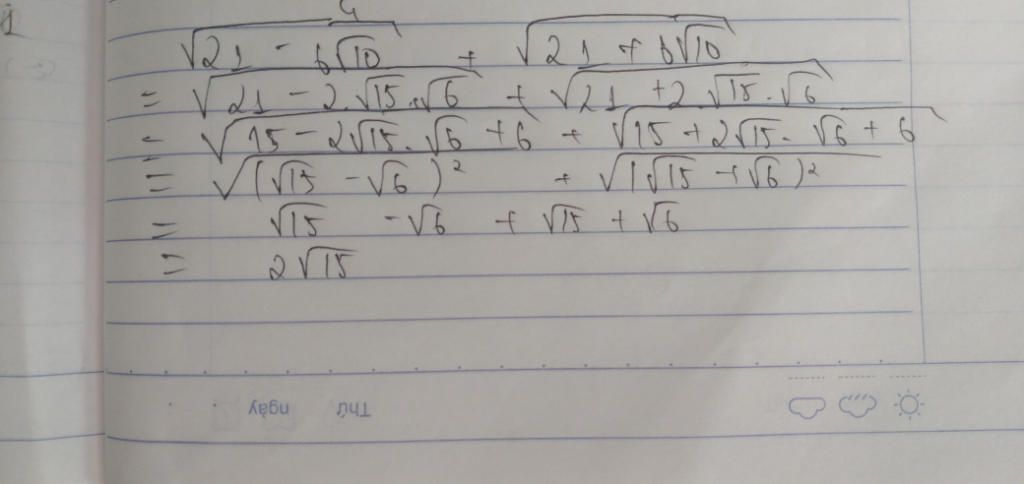 √(21 - 6√10) + √(21 + 6√10)
= √(21 - 2.√15.√6) + √(21 + 2√15.√6)
= √(15 - 2√15.√6 + 6) + √(15 + 2√15.√6 + 6)
= √((√15 - √6)²) + √((√15 + √6)²)
= √15 - √6 + √15 + √6
= 2√15
Thứ ngày